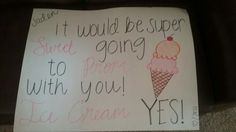 Jaden
it would be super
Sweet going
to Prom
with you!
Ice Cream YES!